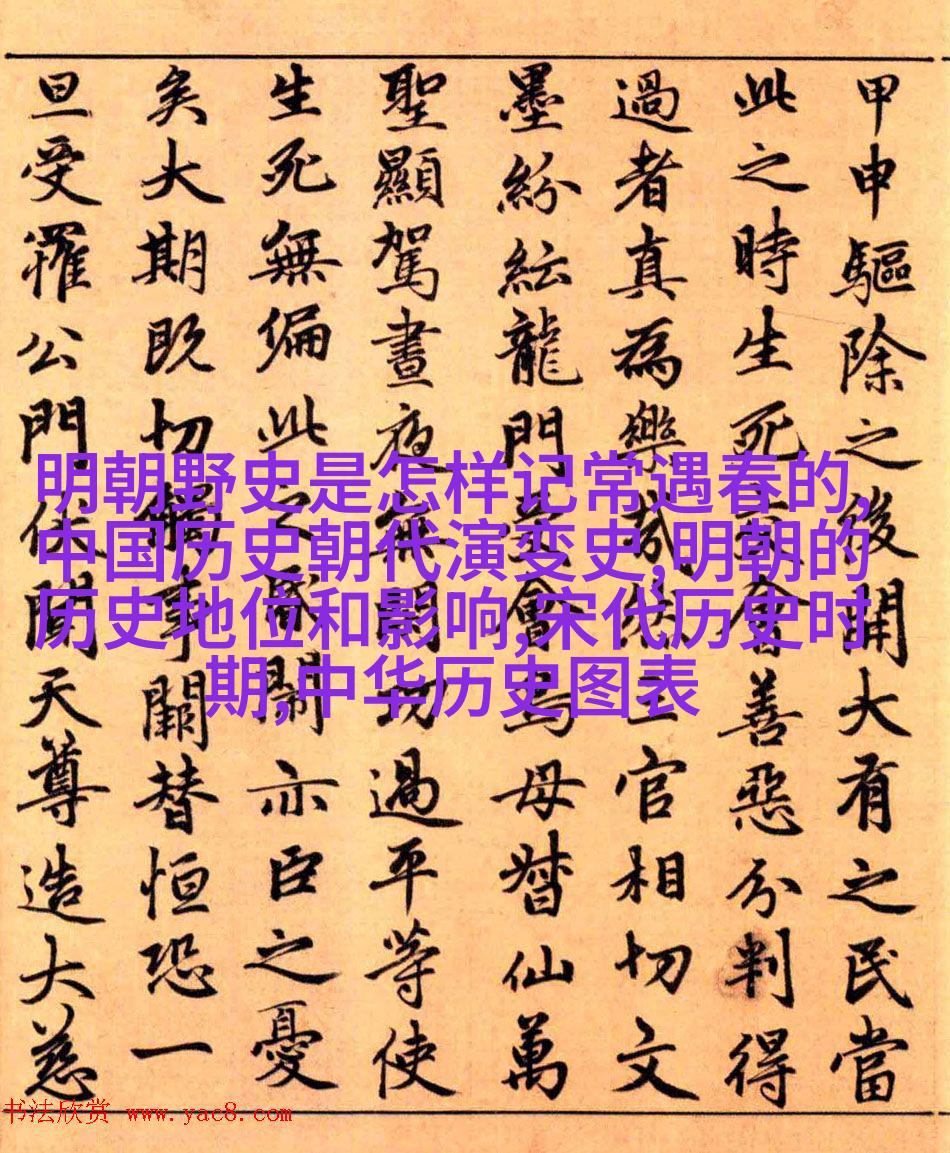 甲申驅除之後開大有之民當
此之時生死會善惡分判得
過者真為樂哉官相切文
墨紛紜龍門會母督仙萬
聖顯駕晝夜無切過平等使
生死無偏此之亦臣之憂
矣大期既切事闕替恒恐一
旦受罹公門伏聞天尊造大慈
明朝野史是怎样记常遇春的,
中国历史朝代演变史,明朝的
历史地位和影响,宋代历史时
期,中华历史图表
书法欣赏 www.yac8.com